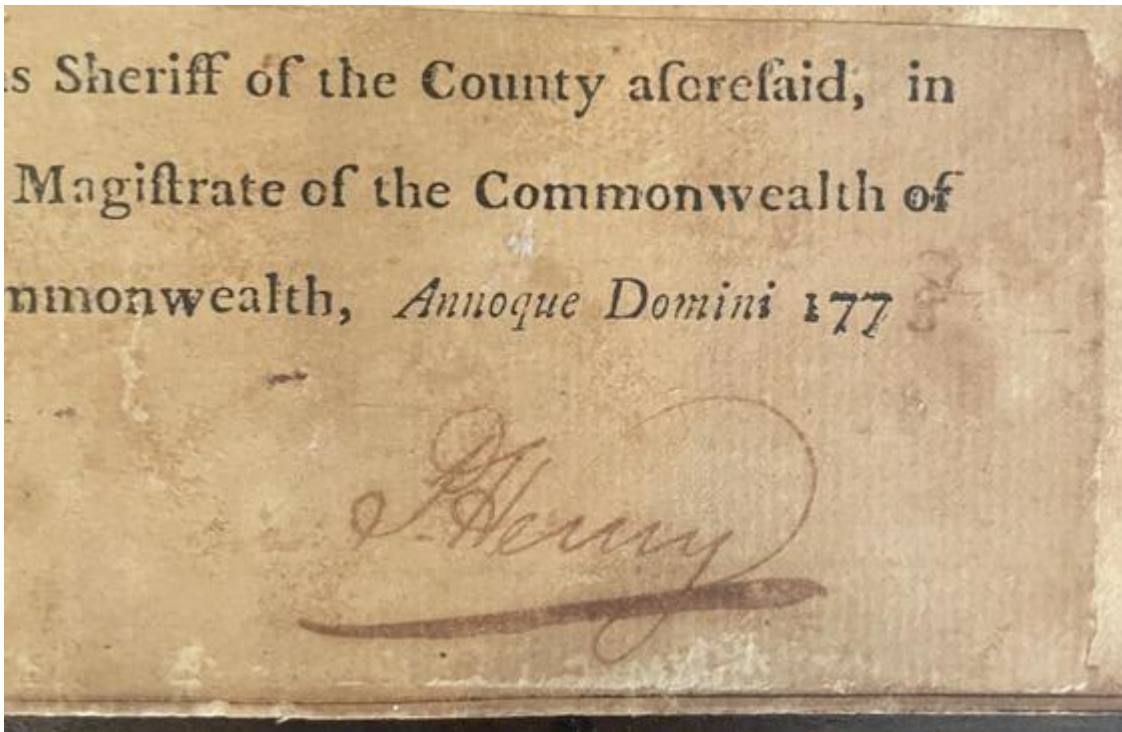 s Sheriff of the County aforeſaid, in
Magiſtrate of the Commonwealth of
mmonwealth, Annoque Domini 177
P. Henry